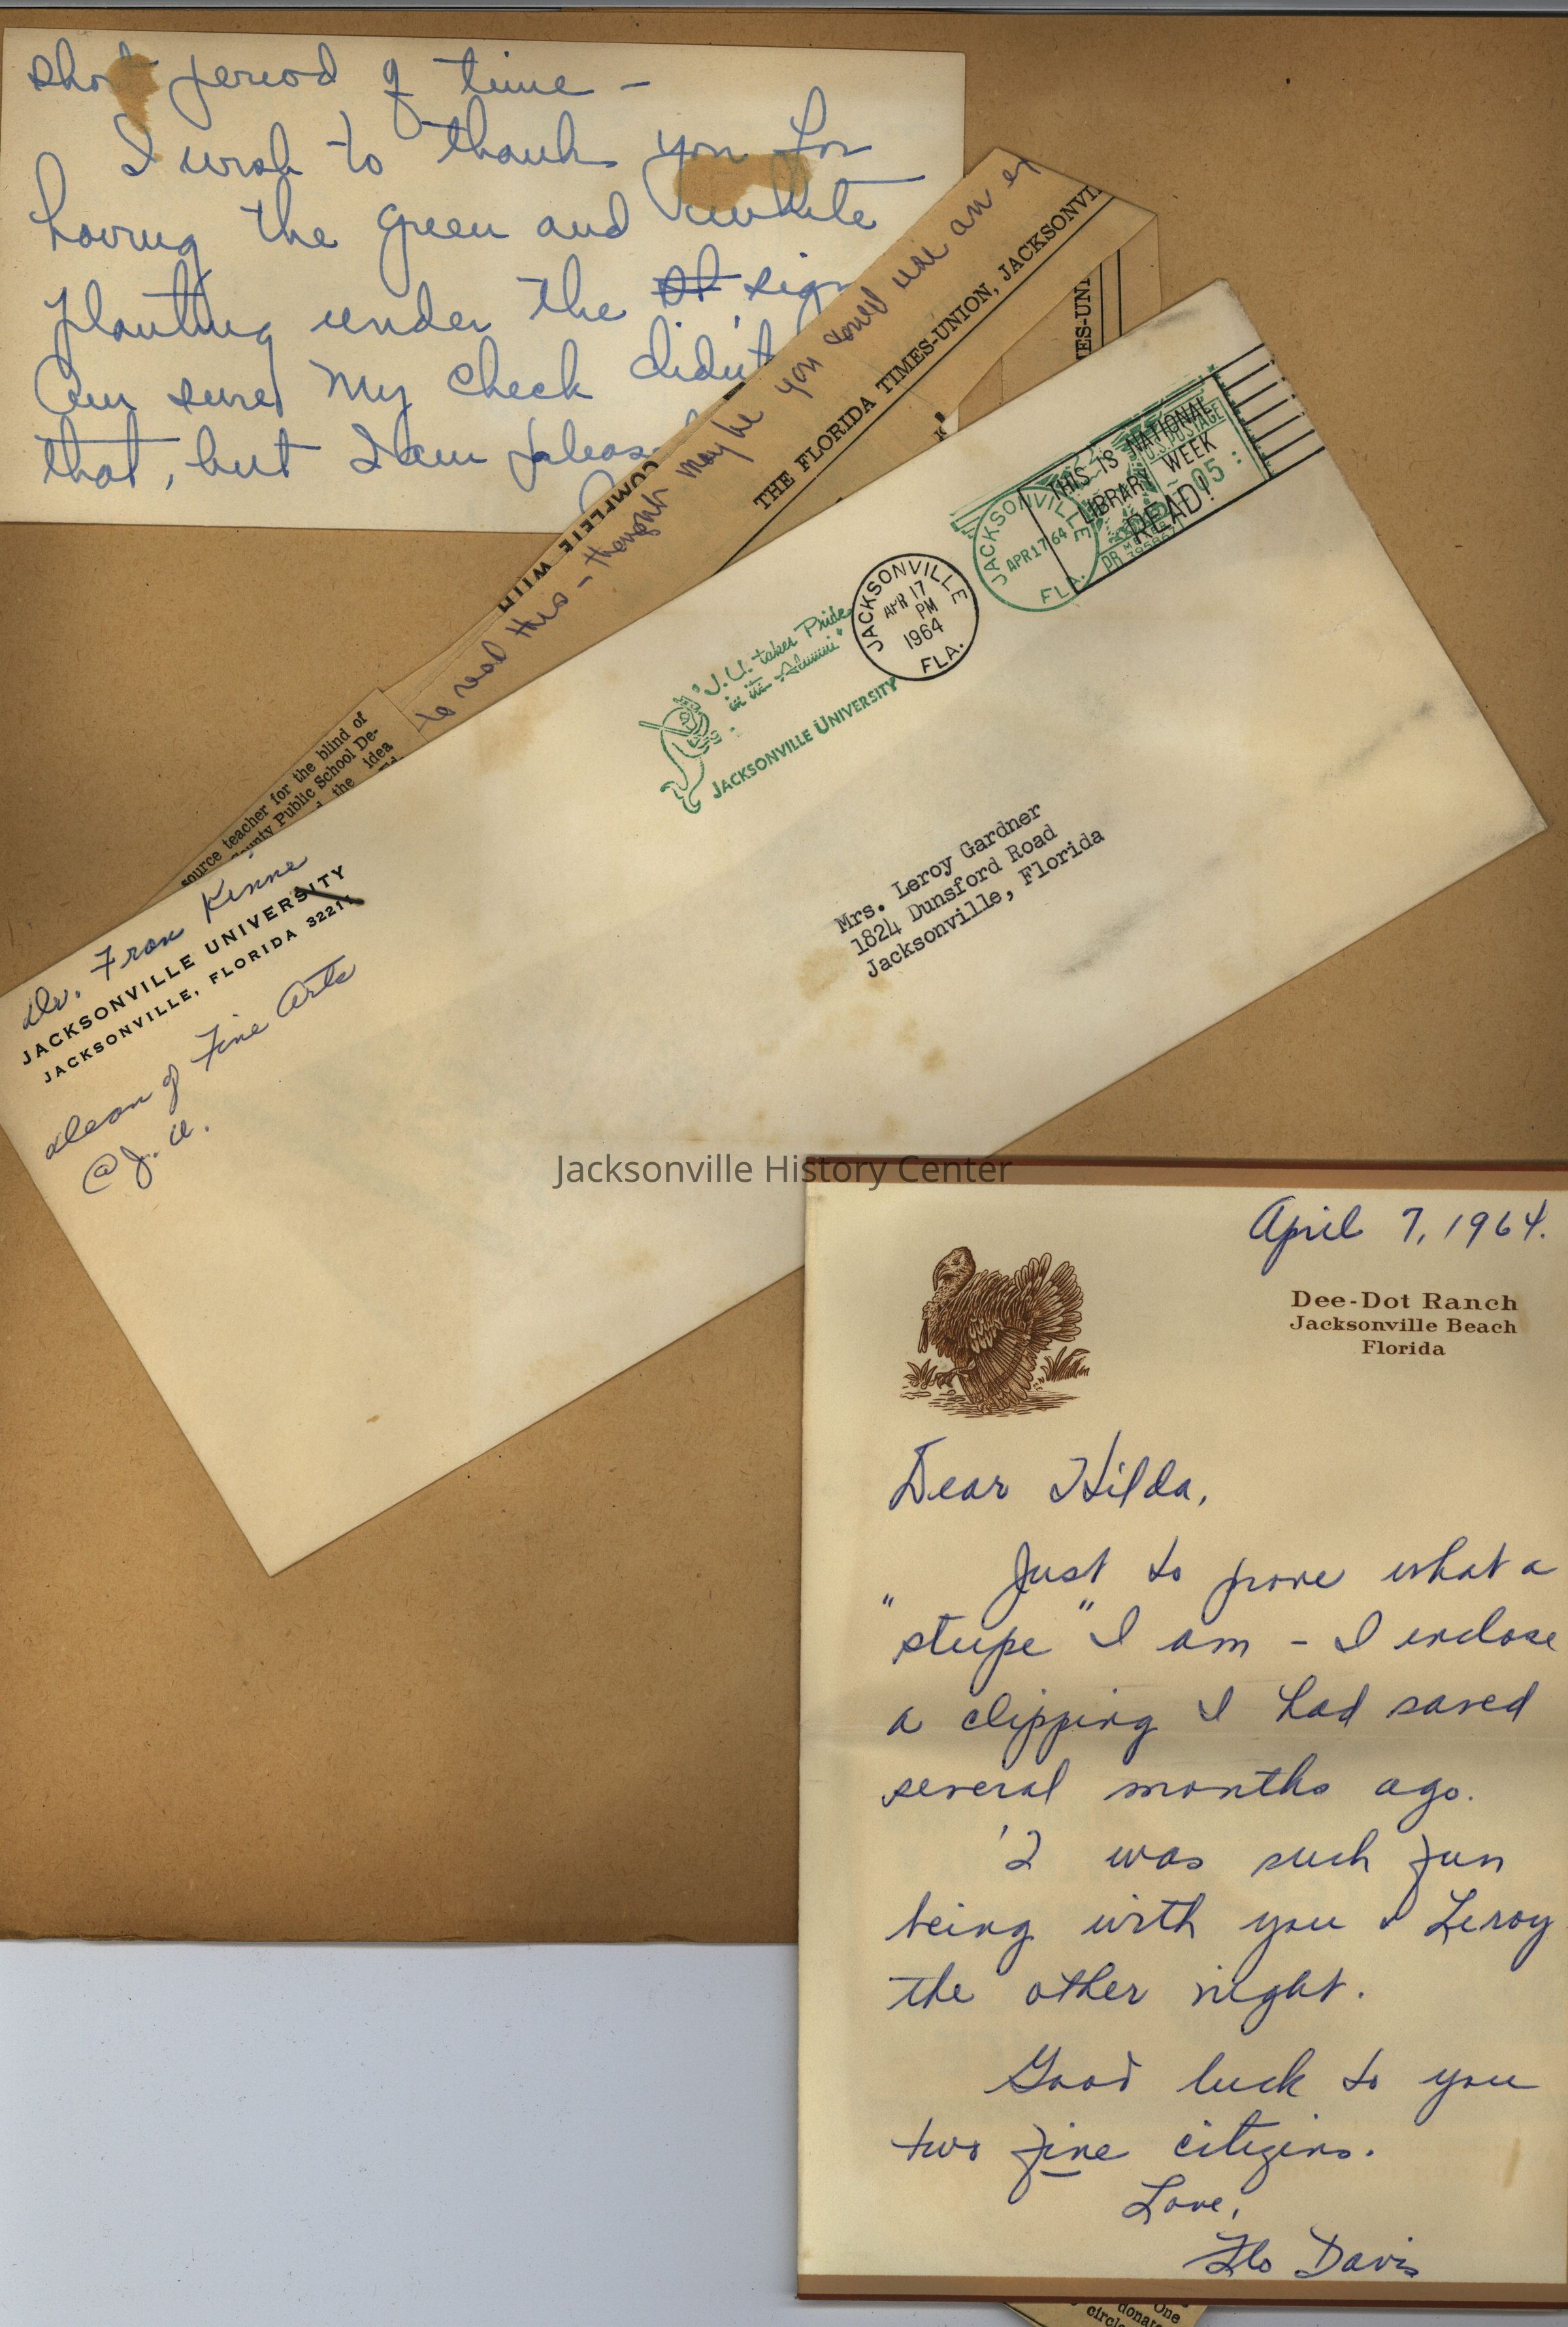 short period of time -
I wish to thank you for
having the green and white
planting under the st sign
Am sure my check didn't
that, but I am pleas
COMPLETE WITH
to read this - thought maybe you could use an
THE FLORIDA TIMES-UNION, JACKSONVI
ES-UNI
source teacher for the blind of
ounty Public School De-
the idea
Dr. Fran Kinne
JACKSONVILLE UNIVERSITY
JACKSONVILLE, FLORIDA 32211
Dean of Fine Arts
@ J. U.
"J.U. takes Pride
in its Alumni"
JACKSONVILLE UNIVERSITY
JACKSONVILLE
APR 17
PM
1964
FLA.
JACKSONVILLE
APR 17 '64
FLA.
U.S. POSTAGE
05
PB METER
THIS IS NATIONAL
LIBRARY WEEK
READ!
Mrs. Leroy Gardner
1824 Dunsford Road
Jacksonville, Florida
Jacksonville History Center
April 7, 1964.
Dee-Dot Ranch
Jacksonville Beach
Florida
Dear Hilda,
Just to prove what a
"stupe" I am - I enclose
a clipping I had saved
several months ago.
'T was such fun
being with you & Leroy
the other night.
Good luck to you
two fine citizens.
Love,
Flo Davis
One
donat
circl